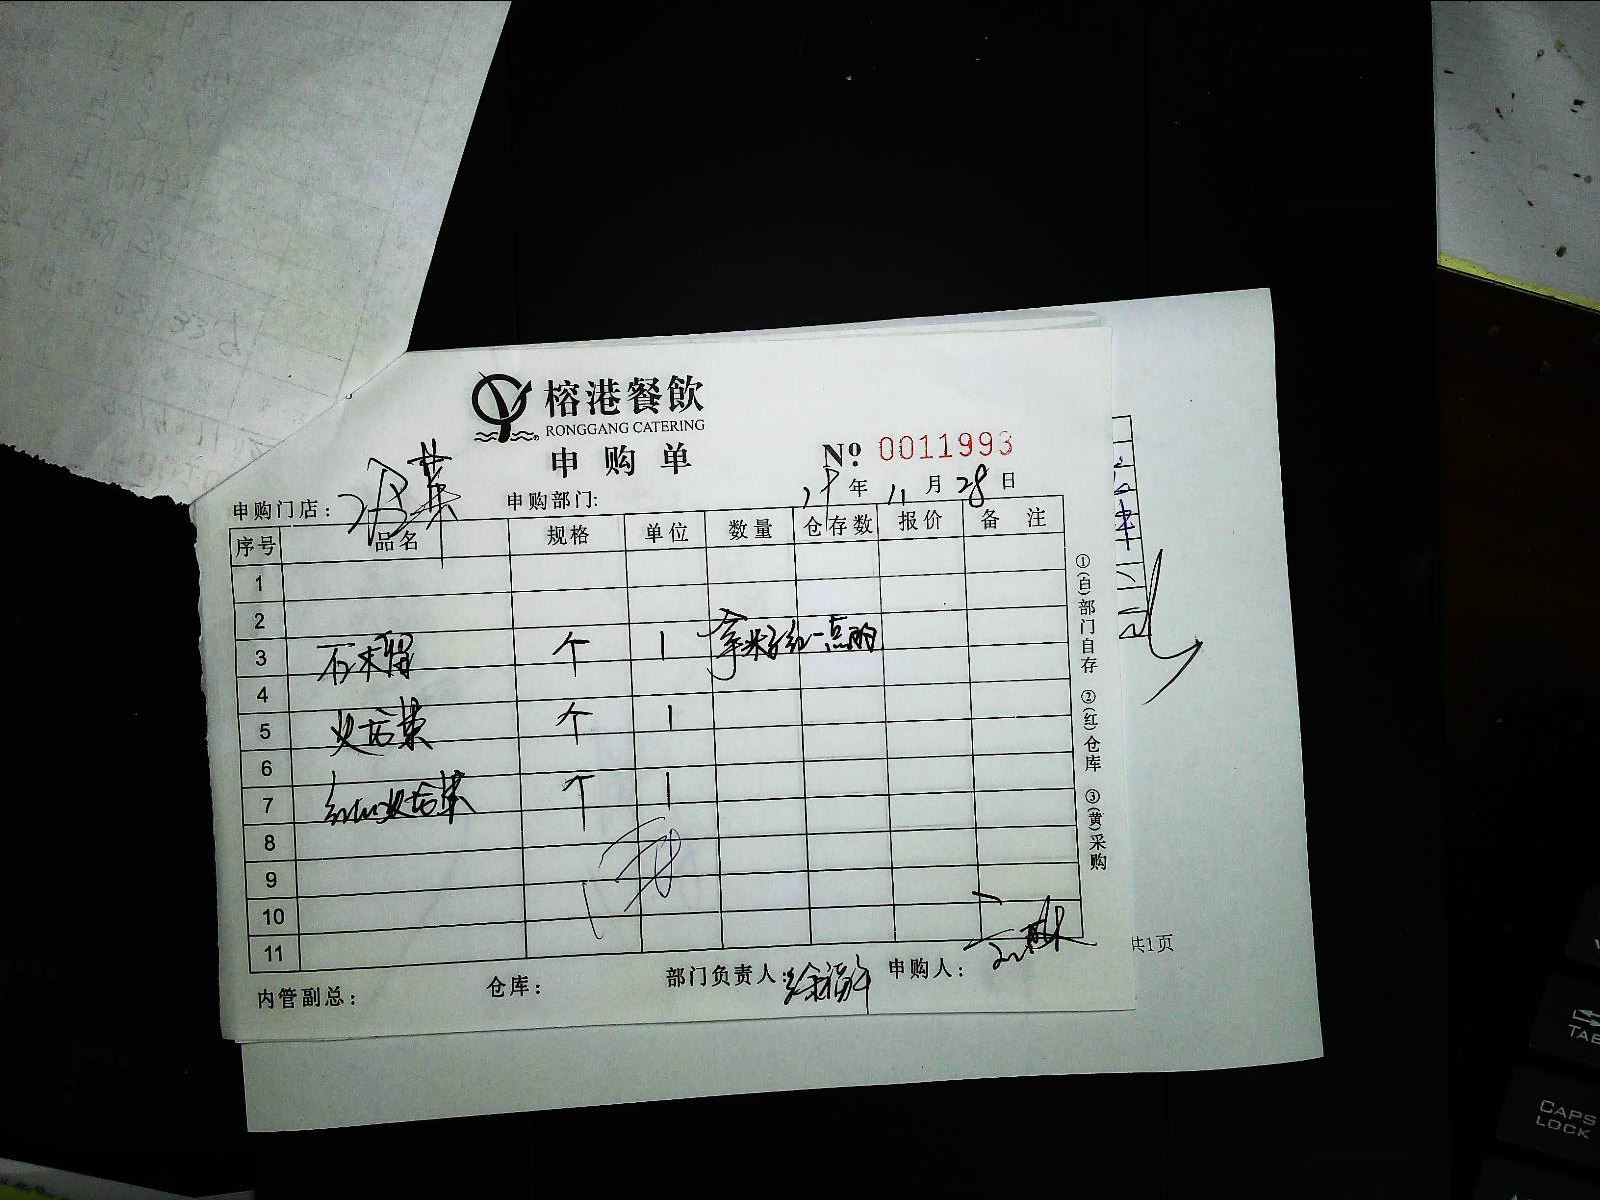 榕港餐飲
RONGGANG CATERING
申购单
No. 0011993
申购门店: 凉菜 申购部门: 年 11 月 28 日
序号 品名 规格 单位 数量 仓存数 报价 备 注
1
2
3 石榴 个 1 拿米子红一点的
4
5 火龙果 个 1
6
7 红心火龙果 个 1
8
9
10
11
内管副总: 仓库: 部门负责人: 申购人:
①(白)部门自存 ②(红)仓库 ③(黄)采购
共1页
TAB
CAPS
LOCK